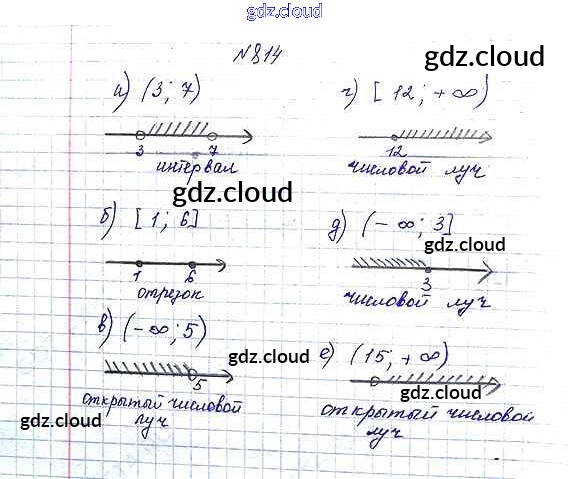 gdz.cloud
№814
gdz.cloud
а) (3; 7)
3 7
интервал
г) [12; +∞)
12
числовой луч
gdz.cloud
б) [1; 6]
1 6
отрезок
д) (-∞; 3]
gdz.cloud
3
числовой луч
в) (-∞; 5)
5
открытый числовой
луч
gdz.cloud
gdz.cloud
е) (15; +∞)
gdz.cloud
открытый числовой
луч
gdz.cloud